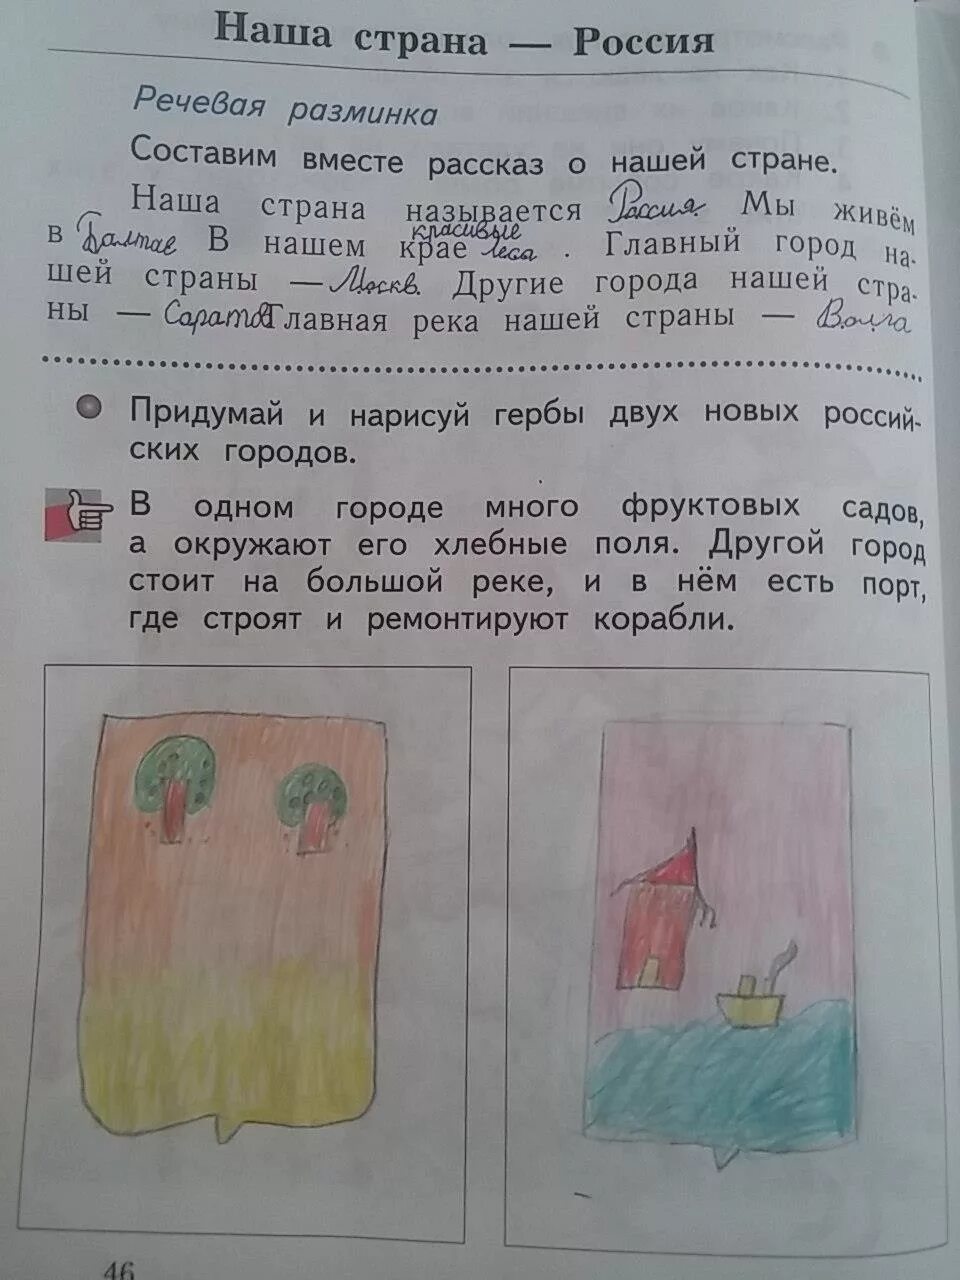 Наша страна — Россия
Речевая разминка
Составим вместе рассказ о нашей стране.
Наша страна называется Россия. Мы живём
красивые
в Балтае В нашем крае леса . Главный город на-
шей страны — Москв. Другие города нашей стра-
ны — Саратов Главная река нашей страны — Волга
Придумай и нарисуй гербы двух новых россий-
ских городов.
В одном городе много фруктовых садов,
а окружают его хлебные поля. Другой город
стоит на большой реке, и в нём есть порт,
где строят и ремонтируют корабли.
46